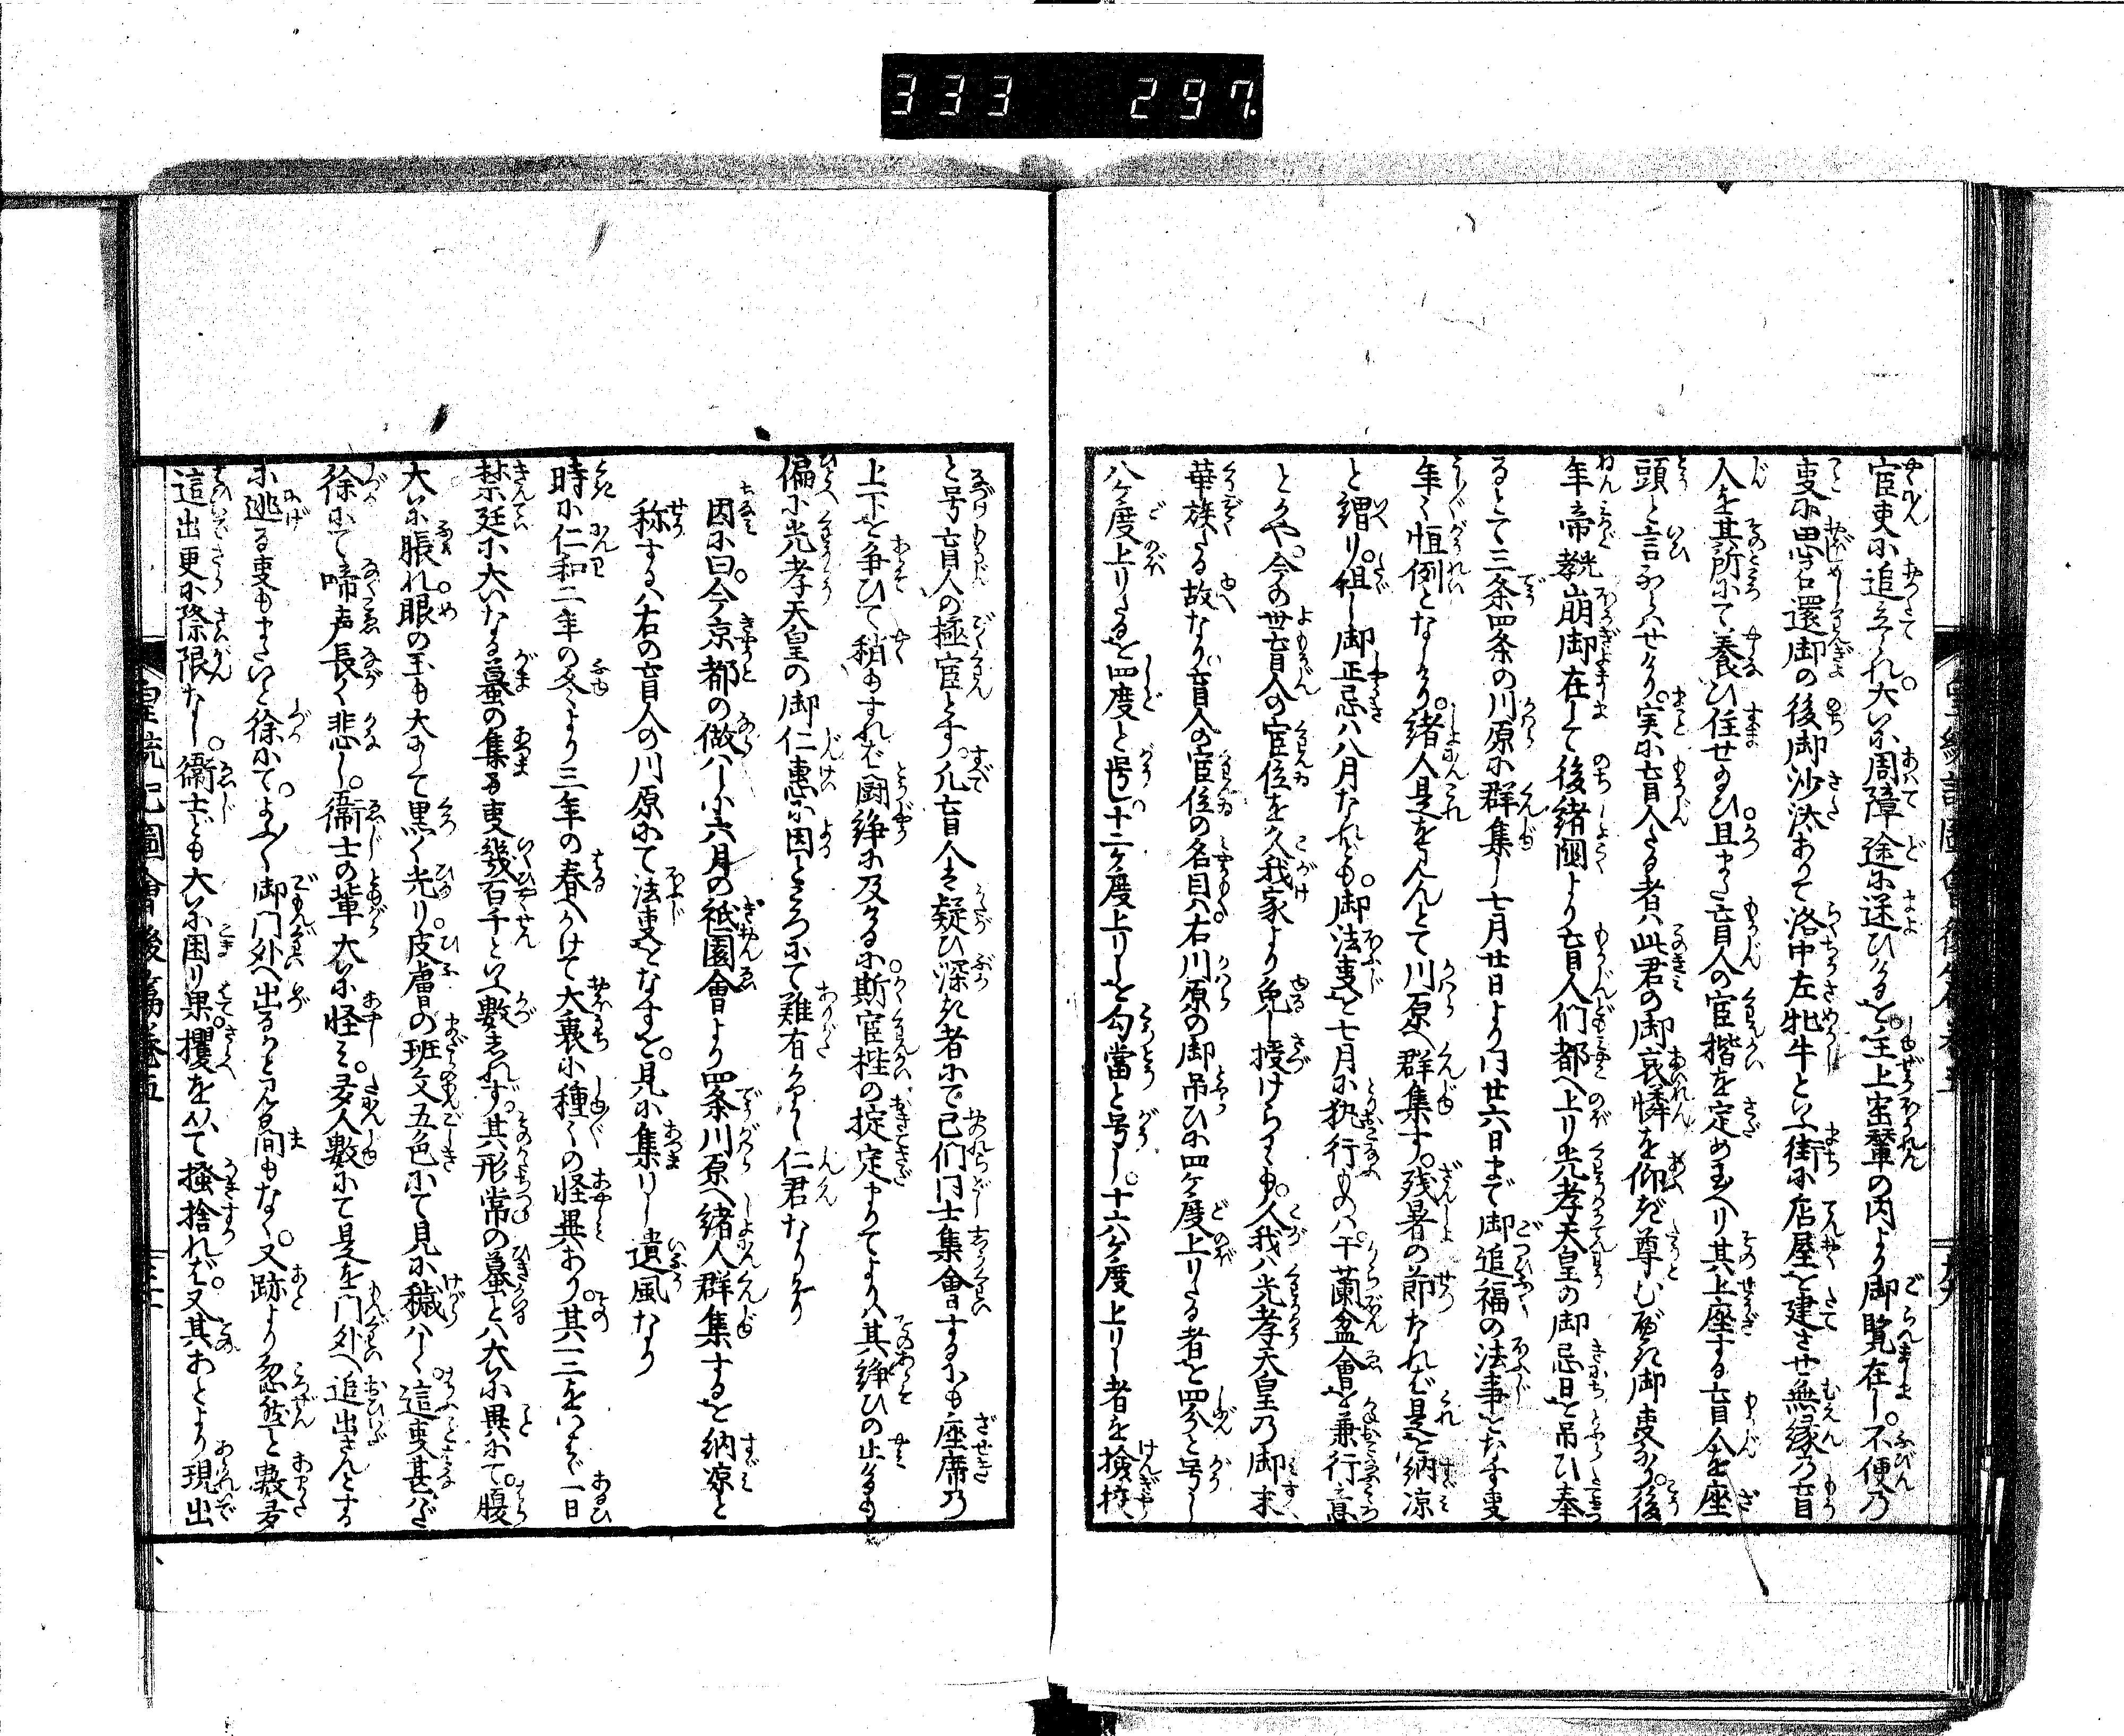 333 297.
官吏に追立られ。大いに周障途に迷ひけるを。主上宝輦の内より御覧在し。不便乃
事に思召還御の後御沙汰ありて洛中左牝牛といふ街に店屋を建させ無縁乃盲
人を其所にて養ひ住せ給ひ且また盲人の官楷を定め玉へり其上座する盲人を座
頭と言なはせけり。実に盲人たる者ハ此君の御哀憐を仰ぎ尊むべき御事なり。後
年帝光孝崩御在して後緒国より盲人们都へ上り光孝天皇の御忌日を吊ひ奉
るとて三条四条の川原に群集し七月廿日より同廿六日まで御追福の法事をなす事
年々恒例となしけり。緒人是を見んとて川原へ群集す。残暑の節なれバ是を納涼
と謂り。但し御正忌ハ八月なれども。御法事を七月に執行ものハ。于蘭盆會を兼行意
とかや。今の世盲人の官位を久我家より免し授けらるゝも。久我ハ光孝天皇乃御末
華族たる故なり盲人の官位の名目ハ。右川原の御吊ひに四ケ度上りたる者を四分と号し
八ケ度上りたるを四度と号し。十二ケ度上りしを勾當と号し。十六ケ度上りし者を撿挍
と号盲人の極官とす。凡盲人は疑ひ深き者にて己们同士集會するにも座席乃
上下を争ひて稍もすれバ闘諍に及ける。斯官楷の掟定まりてよりハ其諍ひの止ける
偏に光孝天皇の御仁惠に因ところにて難有かりし仁君なりけり
因に曰。今京都の俲ハし小六月の祇園會より四条川原へ緒人群集するを納凉と
称するハ右の盲人の川原にて法事をなすを。見に集りし遺風なり
時に仁和二年の冬より三年の春へかけて大裏に種々の怪異あり。其一二をいはゞ一日
禁廷に大いなる蟇の集る事幾百千といふ數をしれず。其形常の蟇とハ大に異にて。腹
大いに脹れ。眼の玉も大きくて黒く光り。皮膚の班文五色にて見に穢ハしく這事甚ハだ
徐にて啼声長く悲し。衛士の輩大いに怪ミ。多人數にて是を門外へ追出さんとする
に逃る事もまたいと徐にて。よふ〳〵御門外へ出るかと見る間もなく。又跡より忽然と數多
這出更に際限なし。衛士ども大いに困り果。攫を以て掻捨れバ。又其あとより現出
皇統記圖會後篇巻五